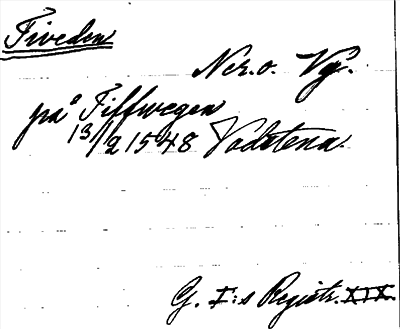 Tiveden
Ner. o. Vg.
på Tiffwegen
13/2 1548 Vadstena.
G. I:s Registr. XIX.